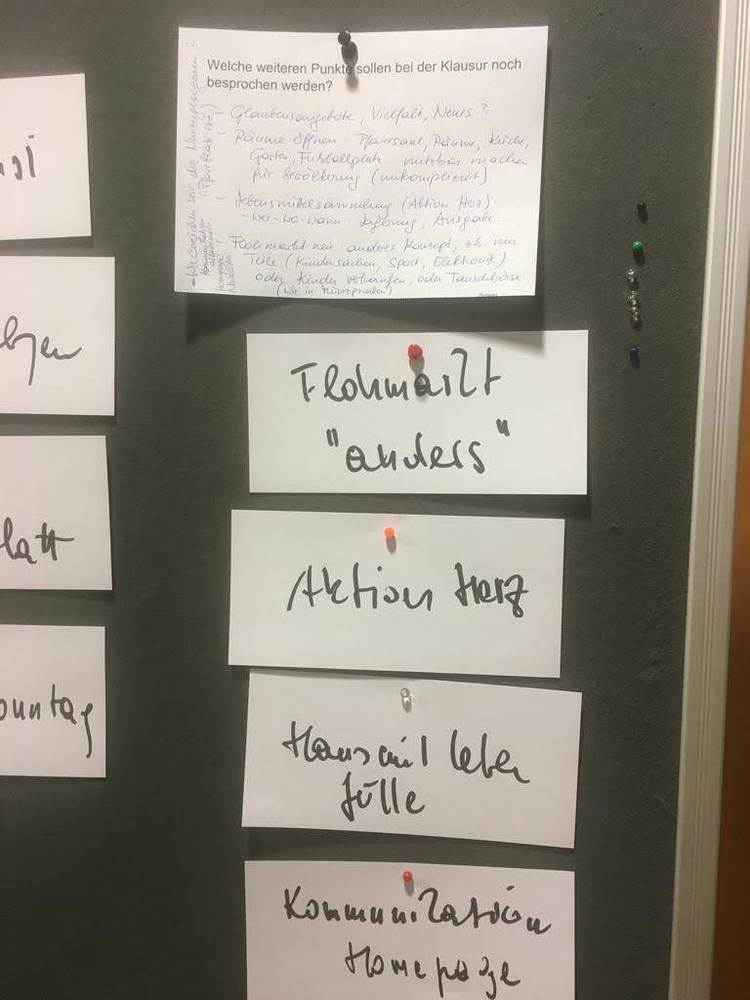 Welche weiteren Punkte sollen bei der Klausur noch
besprochen werden?
- Glaubensangebote, Vielfalt, Neues?
- Räume öffnen Pfarrsaal, Räume, Küche,
Garten, Fussballplatz nutzbar machen
für Bevölkerung (unkompliziert)
- Lebensmittelsammlung (Aktion Herz)
- wer-wo-wann Lagerung, Ausgabe
- Flohmarkt neu anderes Konzept, z.B. nur
Teile (Kindersachen, Sport, Elektronik)
oder Kinder verkaufen, oder Tauschbörse
- Wie erreichen wir die
Flohmarkt
"anders"
Aktion Herz
Haus mit Leben
fülle
Kommunikation
Homepage
latt
onntag